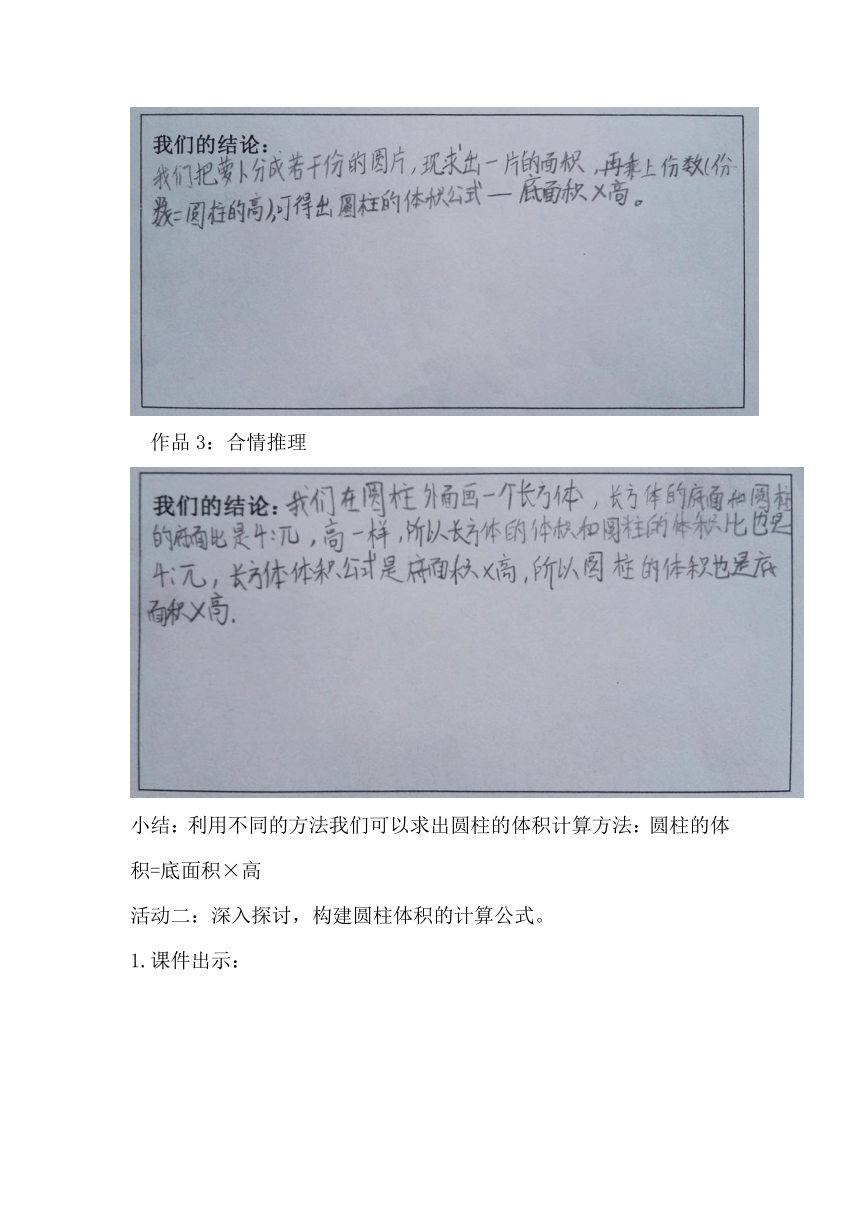 我们的结论:
我们把萝卜分成若干份的圆片,现求出一片的面积,再乘上份数(份
数=圆柱的高),可得出圆柱的体积公式—底面积×高。
作品3：合情推理
我们的结论:我们在圆柱外面画一个长方体,长方体的底面和圆柱
的底面比是4:兀,高一样,所以长方体的体积和圆柱的体积比也是
4:兀,长方体体积公式是底面积×高,所以圆柱的体积也是底
面积×高.
小结：利用不同的方法我们可以求出圆柱的体积计算方法：圆柱的体
积=底面积×高
活动二：深入探讨，构建圆柱体积的计算公式。
1.课件出示：